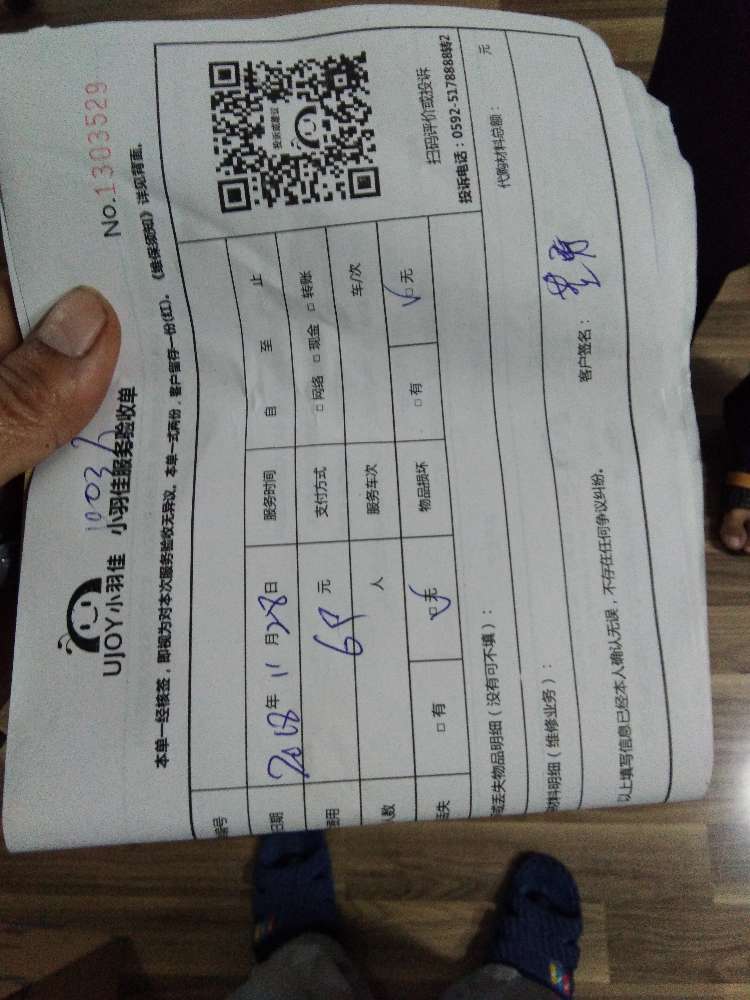 No.1303529
1003
UJOY小羽佳 小羽佳服务验收单
本单一经核签，即视为对本次服务验收无异议。本单一式两份，客户留存一份(红)。《维保须知》详见背面。
编号
日期 2018年 11月28日 服务时间 自 至 止
费用 69 元 支付方式 □ 网络 □ 现金 □ 转账
人数 人 服务车次 车/次
丢失 □ 有 □ 无 物品损坏 □ 有 □ 无
投诉或建议
扫码评价或投诉
投诉电话：0592-5178888转2
丢失物品明细（没有可不填）：
材料明细（维修业务）： 代购材料总额： 元
以上填写信息已经本人确认无误，不存在任何争议纠纷。 客户签名：